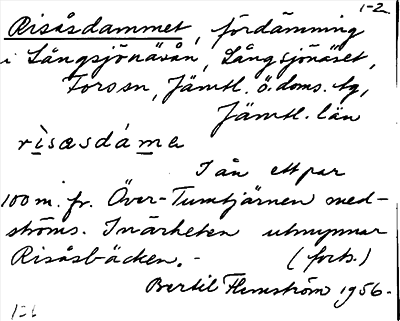 1-2
Risåsdammet, fördämning
i Långsjönäsån, Långsjönäset,
Forssn, Jämtl. ö. doms. tg,
Jämtl. län
rìsæsdáme
I ån ett par
100 m. fr. Över-Tumtjärnen med-
ströms. I närheten utmynnar
Risåsbäcken. - (forts.)
Bertil Flemström 1956.